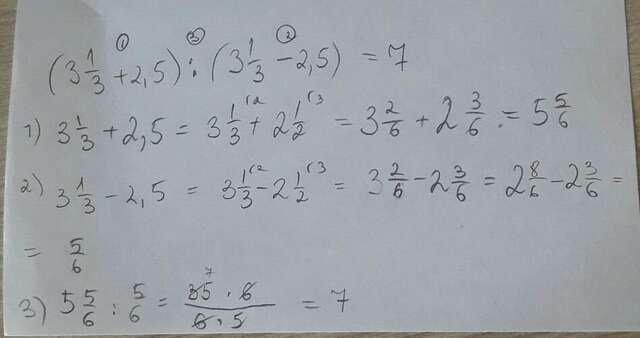 ① ③ ②
(3 1/3 + 2,5) : (3 1/3 - 2,5) = 7
1) 3 1/3 + 2,5 = 3 1/3 (2 + 2 1/2 (3 = 3 2/6 + 2 3/6 = 5 5/6
2) 3 1/3 - 2,5 = 3 1/3 (2 - 2 1/2 (3 = 3 2/6 - 2 3/6 = 2 8/6 - 2 3/6 =
= 5/6
3) 5 5/6 : 5/6 = 7 35 · 6 / 6 · 5 = 7